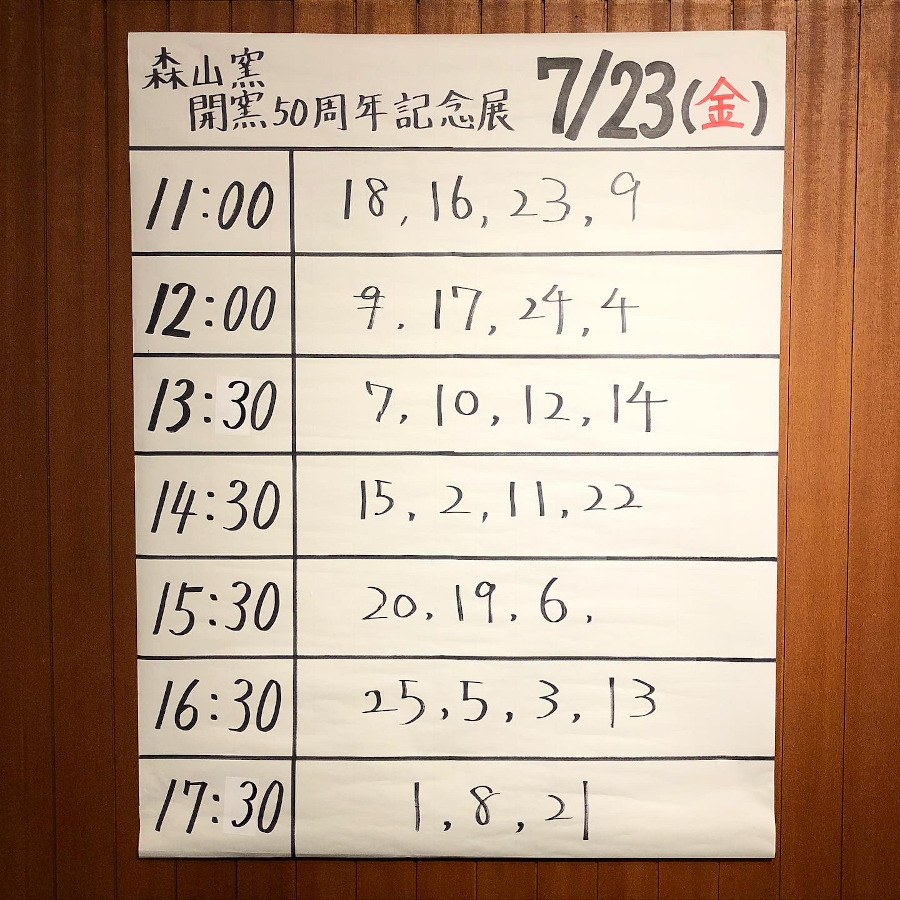 森山窯
開窯50周年記念展 7/23(金)
11:00 18, 16, 23, 9
12:00 9, 17, 24, 4
13:30 7, 10, 12, 14
14:30 15, 2, 11, 22
15:30 20, 19, 6,
16:30 25, 5, 3, 13
17:30 1, 8, 21